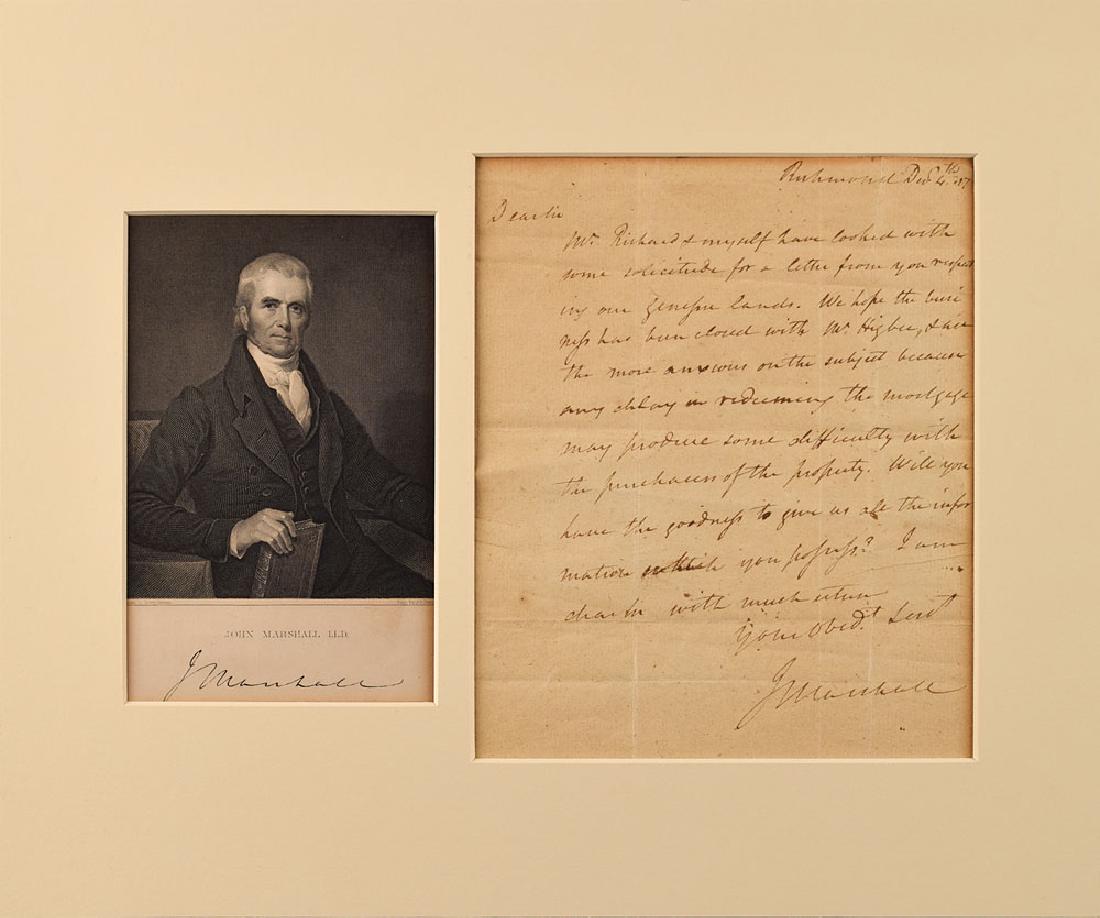 JOHN MARSHALL LL.D.
J Marshall
Richmond Decr 4th 17
Dear Sir
Mr. Richard & myself have looked with
some solicitude for a letter from you respect
ing our Genessee lands. We hope the busi
ness has been closed with Mr. Higbee, & are
the more anxious on the subject because
any delay in redeeming the mortgage
may produce some difficulty with
the purchasers of the property. Will you
have the goodness to give us all the infor
mation which you possess? I am
dear Sir with much esteem
Your Obedt. Servt
J Marshall